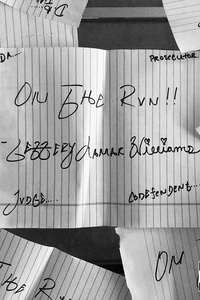 DA....
PROSECUTOR..
ON THE RUN!!
JEFFERY LAMAR WILLIAMS
JUDGE.....
CODEFENDENT....
THE R
ON